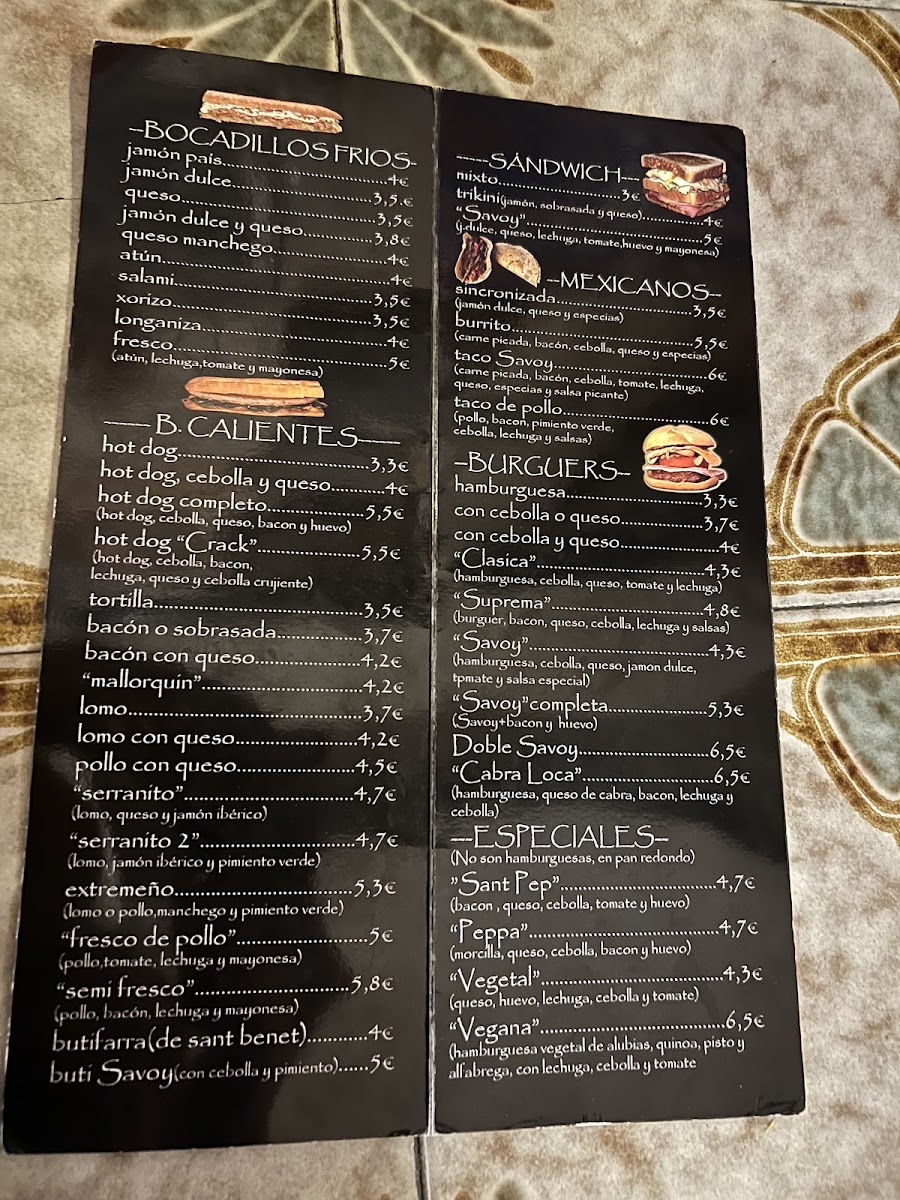 -BOCADILLOS FRIOS-
jamón país.......4€
jamón dulce.......3,5.€
queso.......3,5€
jamón dulce y queso.......3,8€
queso manchego.......4€
atún.......4€
salami.......3,5€
xorizo.......3,5€
longaniza.......4€
fresco.......5€
(atún, lechuga,tomate y mayonesa)
—— B. CALIENTES——
hot dog.......3,3€
hot dog, cebolla y queso.......4€
hot dog completo.......5,5€
(hot dog, cebolla, queso, bacon y huevo)
hot dog “Crack”.......5,5€
(hot dog, cebolla, bacon,
lechuga, queso y cebolla crujiente)
tortilla.......3,5€
bacón o sobrasada.......3,7€
bacón con queso.......4,2€
“mallorquín”.......4,2€
lomo.......3,7€
lomo con queso.......4,2€
pollo con queso.......4,5€
“serranito”.......4,7€
(lomo, queso y jamón ibérico)
“serranito 2”.......4,7€
(lomo, jamón ibérico y pimiento verde)
extremeño.......5,3€
(lomo o pollo,manchego y pimiento verde)
“fresco de pollo”.......5€
(pollo,tomate, lechuga y mayonesa)
“semi fresco”.......5,8€
(pollo, bacón, lechuga y mayonesa)
butifarra(de sant benet).......4€
buti Savoy(con cebolla y pimiento)......5€
-----SÁNDWICH---
mixto.......3€
trikini(jamón, sobrasada y queso).......4€
“Savoy”.......5€
(j.dulce, queso, lechuga, tomate,huevo y mayonesa)
--MEXICANOS--
sincronizada.......3,5€
(jamón dulce, queso y especias)
burrito.......5,5€
(carne picada, bacón, cebolla, queso y especias)
taco Savoy.......6€
(carne picada, bacón, cebolla, tomate, lechuga,
queso, especias y salsa picante)
taco de pollo.......6€
(pollo, bacon, pimiento verde,
cebolla, lechuga y salsas)
--BURGUERS--
hamburguesa.......3,3€
con cebolla o queso.......3,7€
con cebolla y queso.......4€
“Clasica”.......4,3€
(hamburguesa, cebolla, queso, tomate y lechuga)
“Suprema”.......4,8€
(burguer, bacon, queso, cebolla, lechuga y salsas)
“Savoy”.......4,3€
(hamburguesa, cebolla, queso, jamon dulce,
tpmate y salsa especial)
“Savoy”completa.......5,3€
(Savoy+bacon y huevo)
Doble Savoy.......6,5€
“Cabra Loca”.......6,5€
(hamburguesa, queso de cabra, bacon, lechuga y
cebolla)
---ESPECIALES--
(No son hamburguesas, en pan redondo)
”Sant Pep”.......4,7€
(bacon , queso, cebolla, tomate y huevo)
“Peppa”.......4,7€
(morcilla, queso, cebolla, bacon y huevo)
“Vegetal”.......4,3€
(queso, huevo, lechuga, cebolla y tomate)
“Vegana”.......6,5€
(hamburguesa vegetal de alubias, quinoa, pisto y
alfabrega, con lechuga, cebolla y tomate